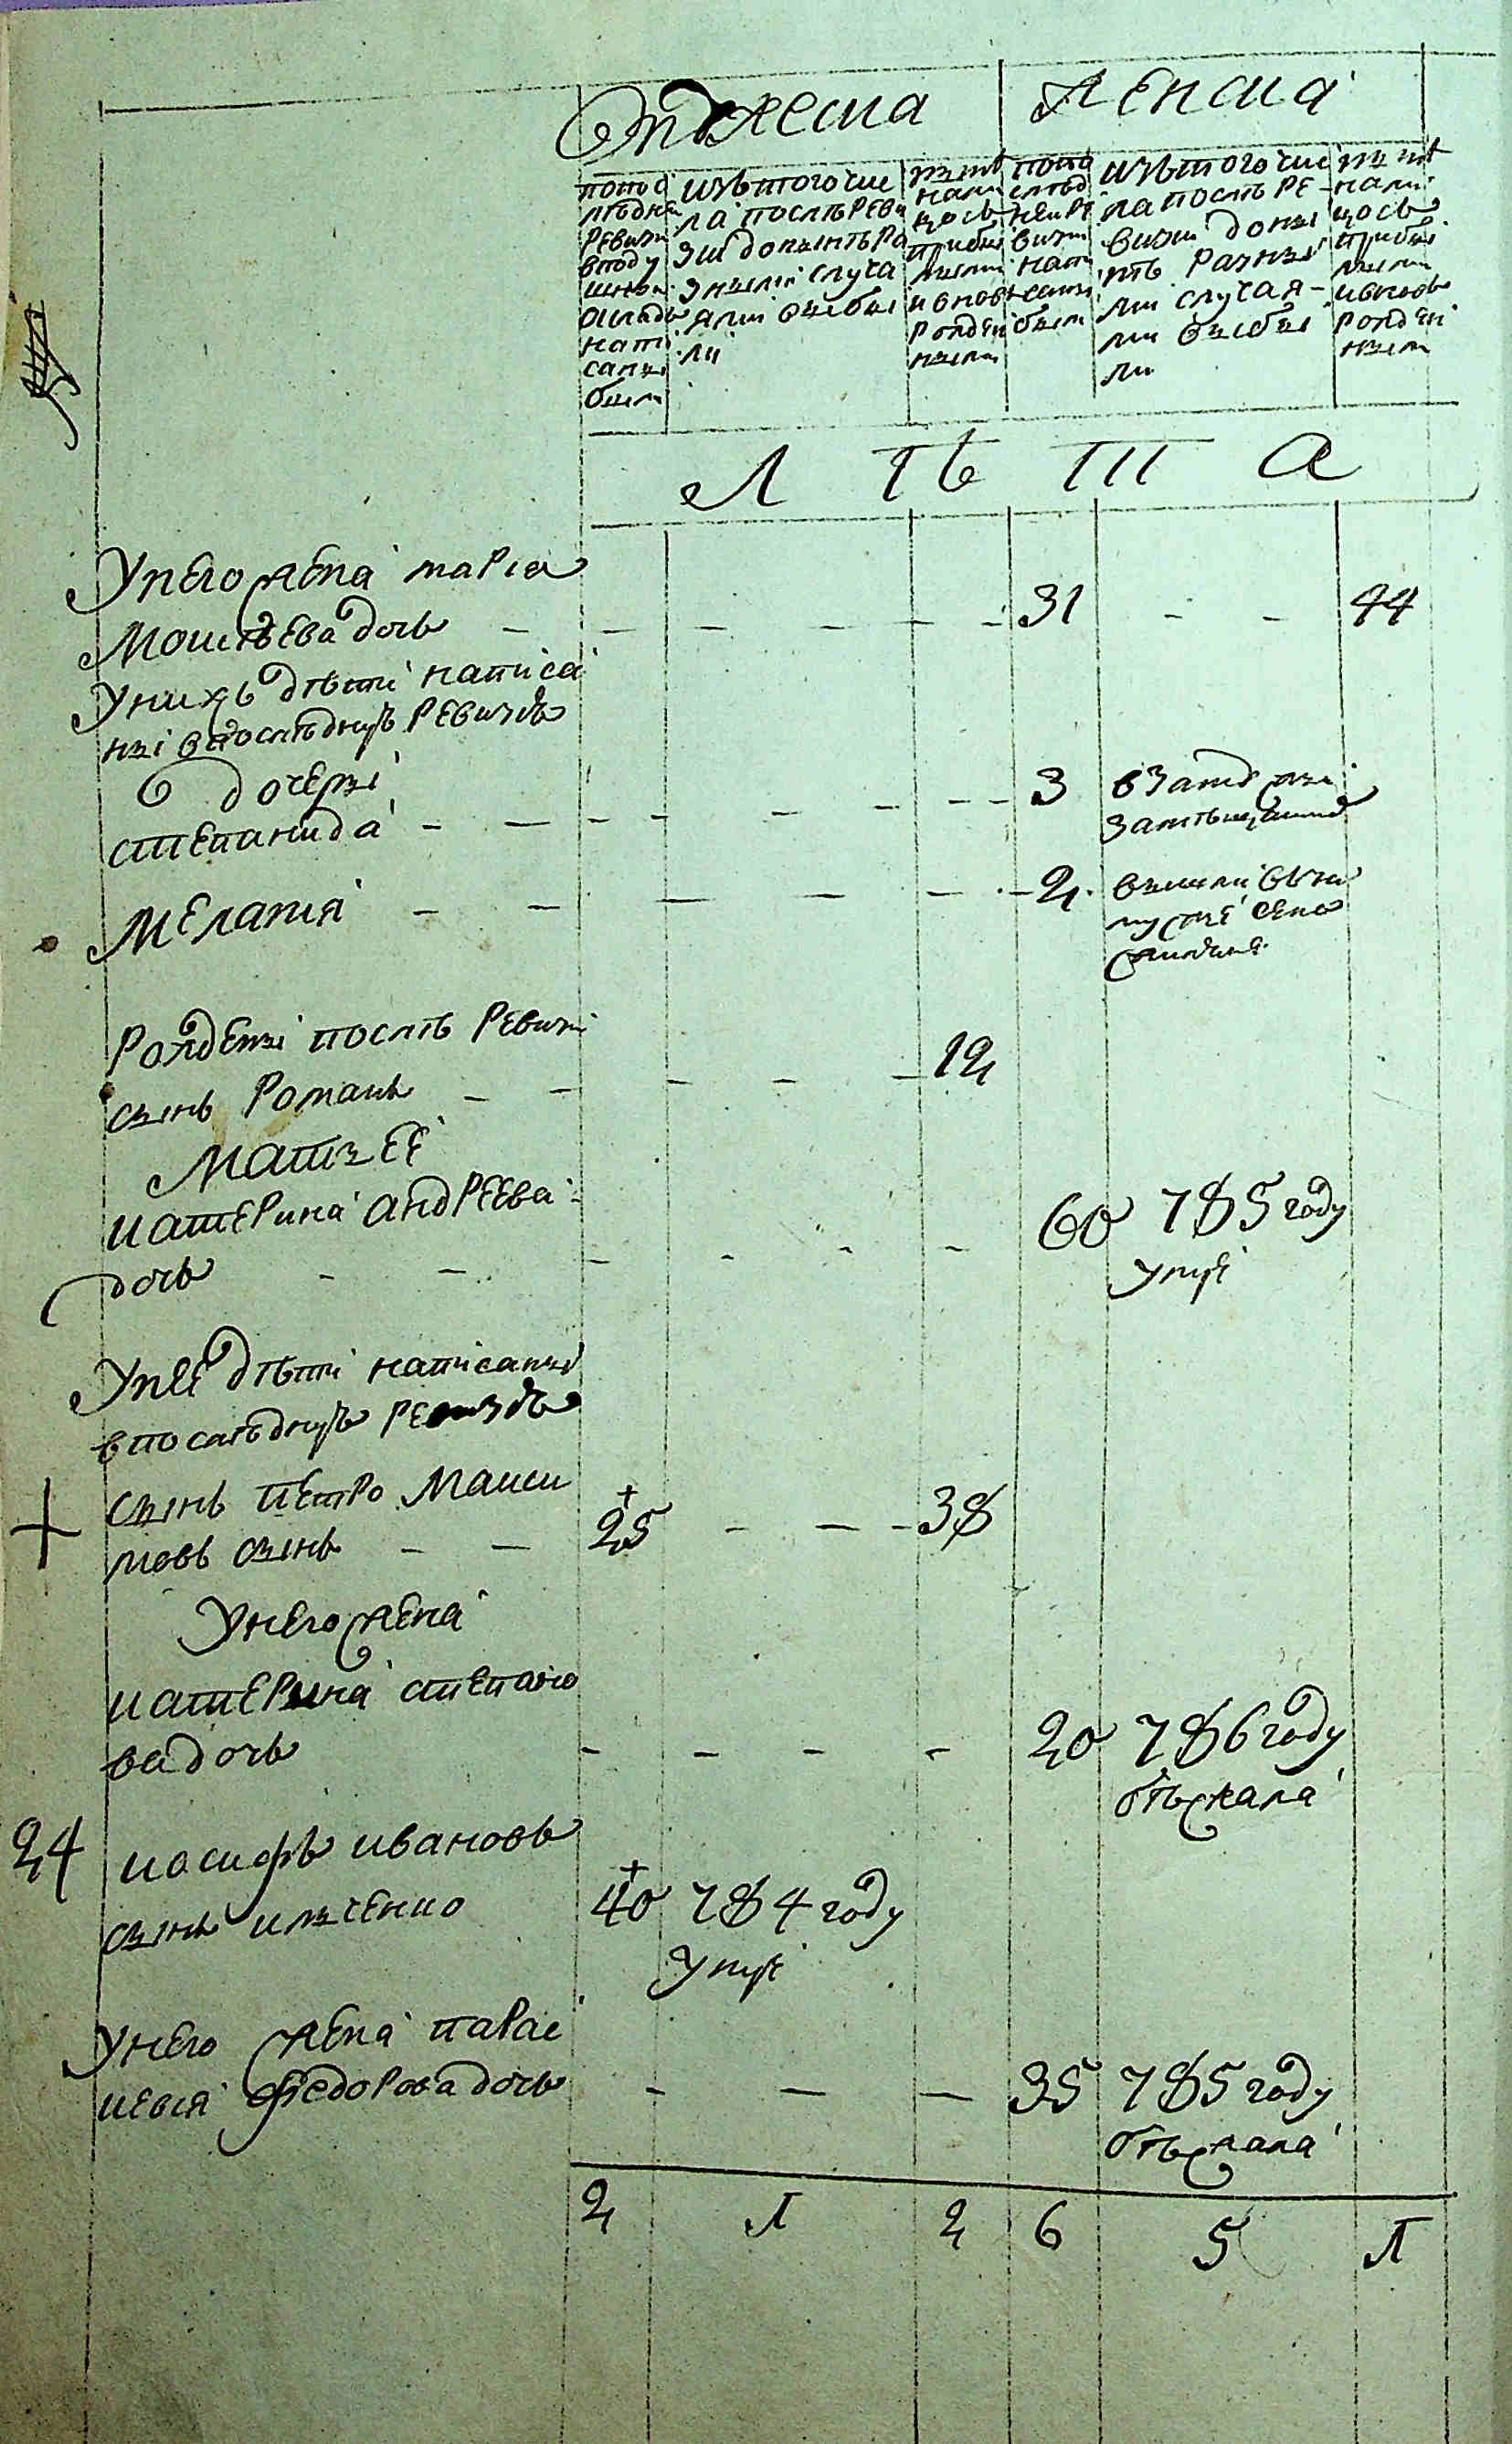 Мужеска Женска
по пос
ледне
ревизи
в поду
шном
окладе
напи
саны
были
изъ того чис
ла после реви
зии до нынѣ ра
зными случа
ями выбы
ли
ныне
нали
цось
прибы
лыми
и вновь
рожден
ными
по по
след
ней ре
визи
напи
саны
были
изъ того чис
ла после ре
визии до ны
нѣ разны
ми случая
ми выбы
ли
ныне
нали
цось
прибы
лыми
и вновь
рожден
ными
Л ѣ т а
У него жена мариа
Моисѣева дочь - - - - - 31 - - 44
У нихъ дѣти написа
ны в последную ревизию
дочери
степанида - - - - - - - 3 в замужъи
Мелания - - - - - - 2 вышли
в замуже
Рождены послѣ ревизи
сынъ Романъ - - - - - 12
Мать ее
катерина андреева
дочь - - - - - - 60 785 году
умре
У нее дѣти написаны
в последную ревизию
+ сынъ петро Макси
мовъ сынъ - - + 25 - - - 38
У него жена
катерина степано
ва дочь - - - - 20 786 году
бѣжала
24 иосифъ ивановъ
сынъ илченко + 40 784 году
умре
У него жена парас
кевия федорова дочь - - - 35 785 году
бѣжала
2 1 2 6 5 1